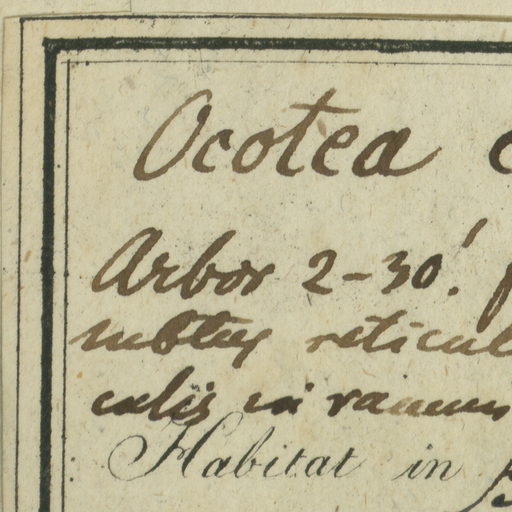 Ocotea c
Arbor 2-30'.
subtus reticul
culis in ramum
Habitat in